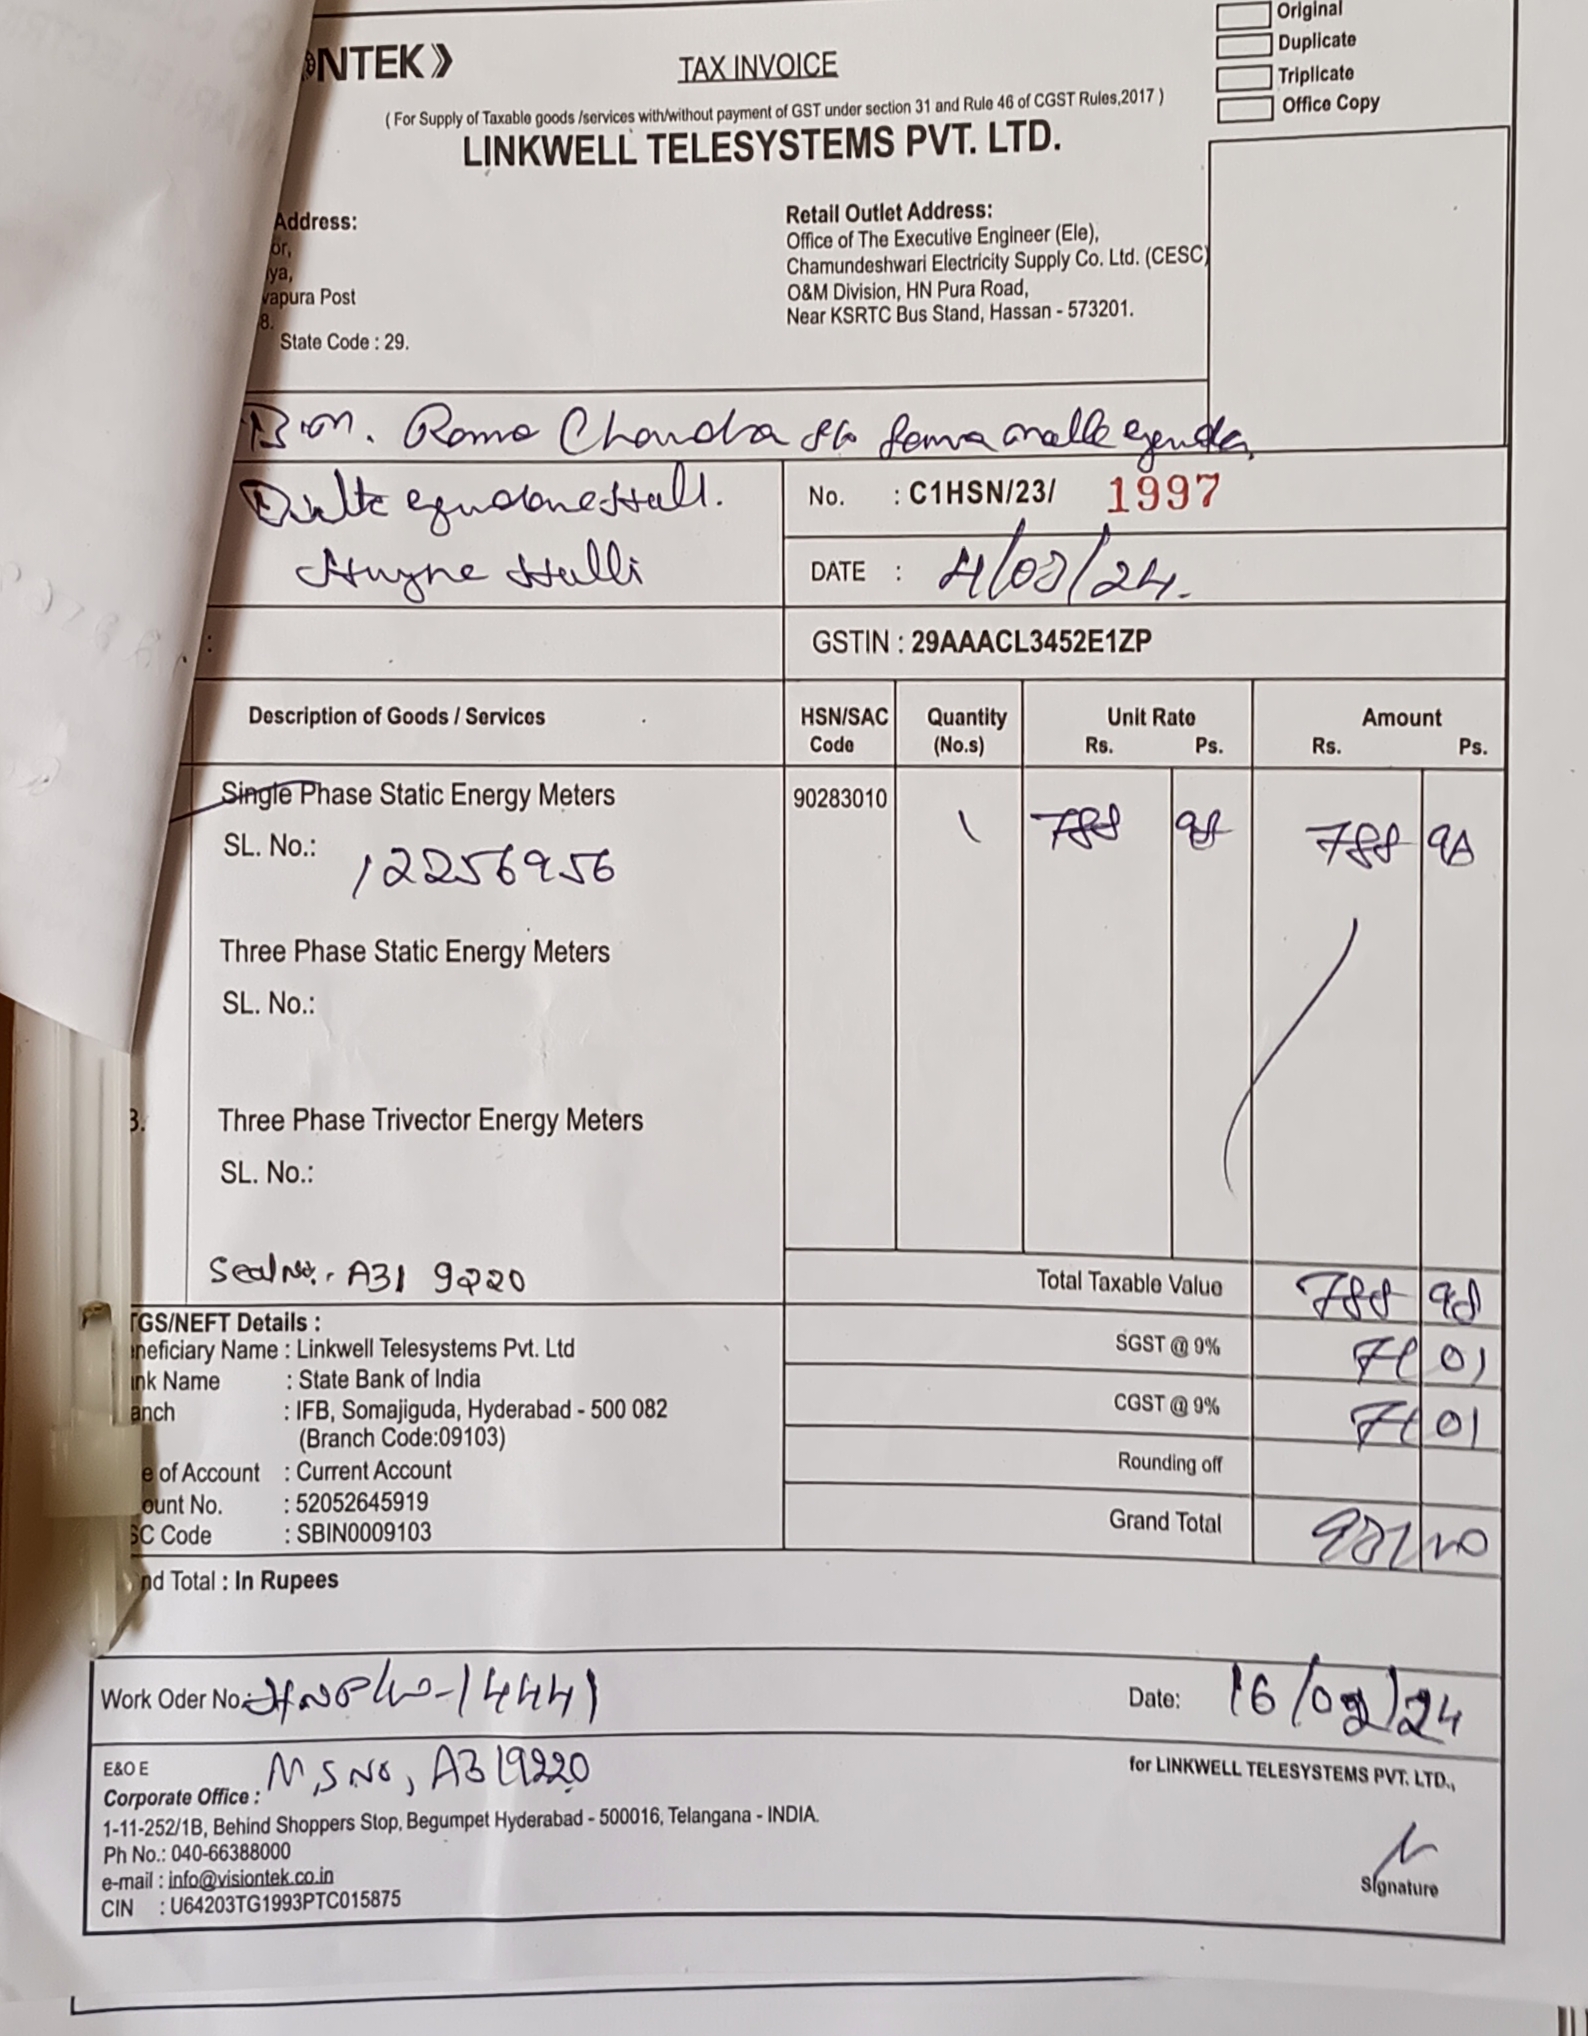 NTEK
TAX INVOICE
Original
Duplicate
Triplicate
Office Copy
( For Supply of Taxable goods /services with/without payment of GST under section 31 and Rule 46 of CGST Rules,2017 )
LINKWELL TELESYSTEMS PVT. LTD.
Address:
or,
ya,
vapura Post
8.
State Code : 29.
Retail Outlet Address:
Office of The Executive Engineer (Ele),
Chamundeshwari Electricity Supply Co. Ltd. (CESC)
O&M Division, HN Pura Road,
Near KSRTC Bus Stand, Hassan - 573201.
Rama Chandra
No. : C1HSN/23/ 1997
Halli
DATE : 4/03/24.
: GSTIN : 29AAACL3452E1ZP
Description of Goods / Services HSN/SAC Code Quantity (No.s) Unit Rate Rs. Ps. Amount Rs. Ps.
Single Phase Static Energy Meters 90283010 1 788 98 788 98
SL. No.: 12256956
Three Phase Static Energy Meters
SL. No.:
3. Three Phase Trivector Energy Meters
SL. No.:
Seal No. A31 9220
Total Taxable Value 788 98
SGST @ 9% 71 01
CGST @ 9% 71 01
Rounding off
Grand Total
TGS/NEFT Details :
neficiary Name : Linkwell Telesystems Pvt. Ltd
nk Name : State Bank of India
anch : IFB, Somajiguda, Hyderabad - 500 082
(Branch Code:09103)
e of Account : Current Account
ount No. : 52052645919
SC Code : SBIN0009103
nd Total : In Rupees
Work Oder No: 14441
Date: 16/02/24
E&O E
M,S No, A319220
Corporate Office :
1-11-252/1B, Behind Shoppers Stop, Begumpet Hyderabad - 500016, Telangana - INDIA.
Ph No.: 040-66388000
e-mail : info@visiontek.co.in
CIN : U64203TG1993PTC015875
for LINKWELL TELESYSTEMS PVT. LTD.,
Signature